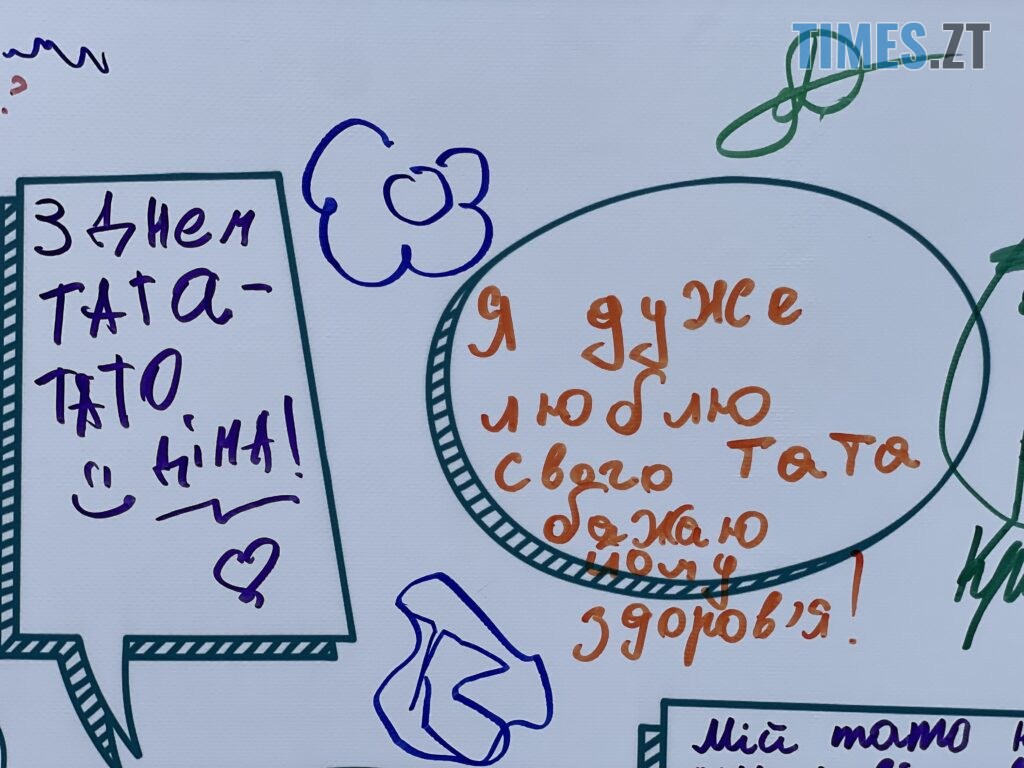 TIMES.ZT
З ДНем
ТАТА-
ТАТО
ДІМА!
Я дуже
люблю
свого тата
бажаю
йому
здоров'я!
Мій тато